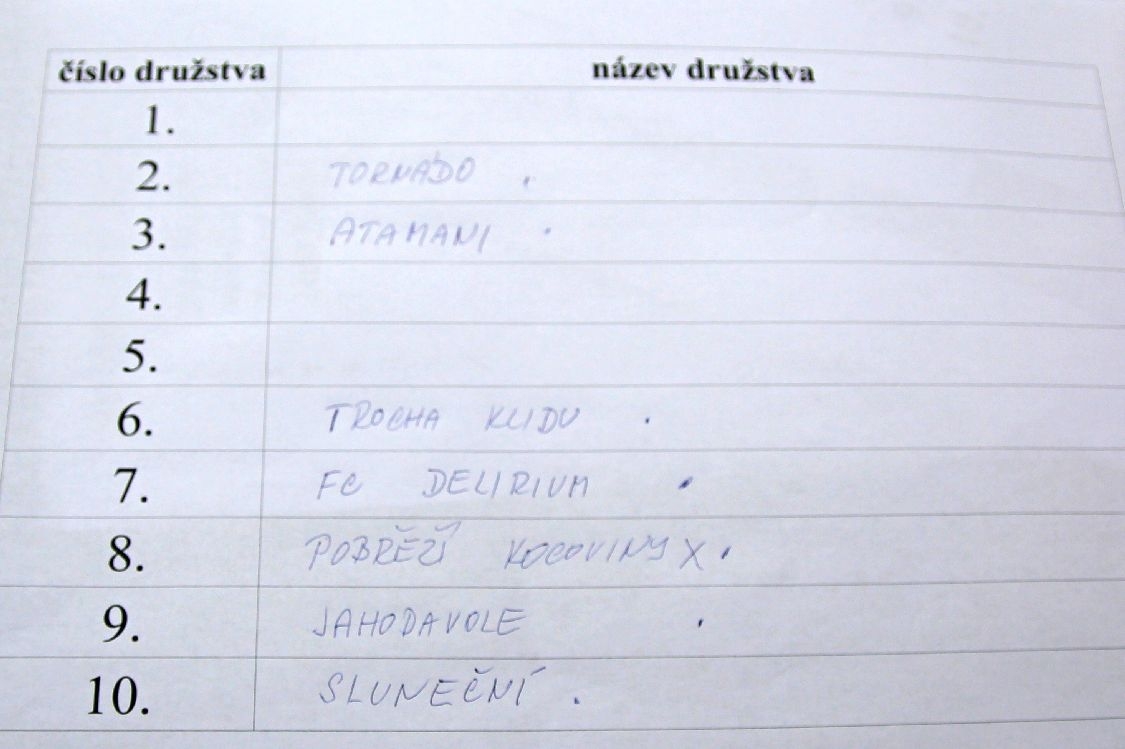 číslo družstva název družstva
1.
2. TORNÁDO .
3. ATAMANI .
4.
5.
6. TROCHA KLIDU .
7. FC DELIRIUM .
8. POBŘEŽÍ KOCOVINY X .
9. JAHODAVOLE .
10. SLUNEČNÍ .